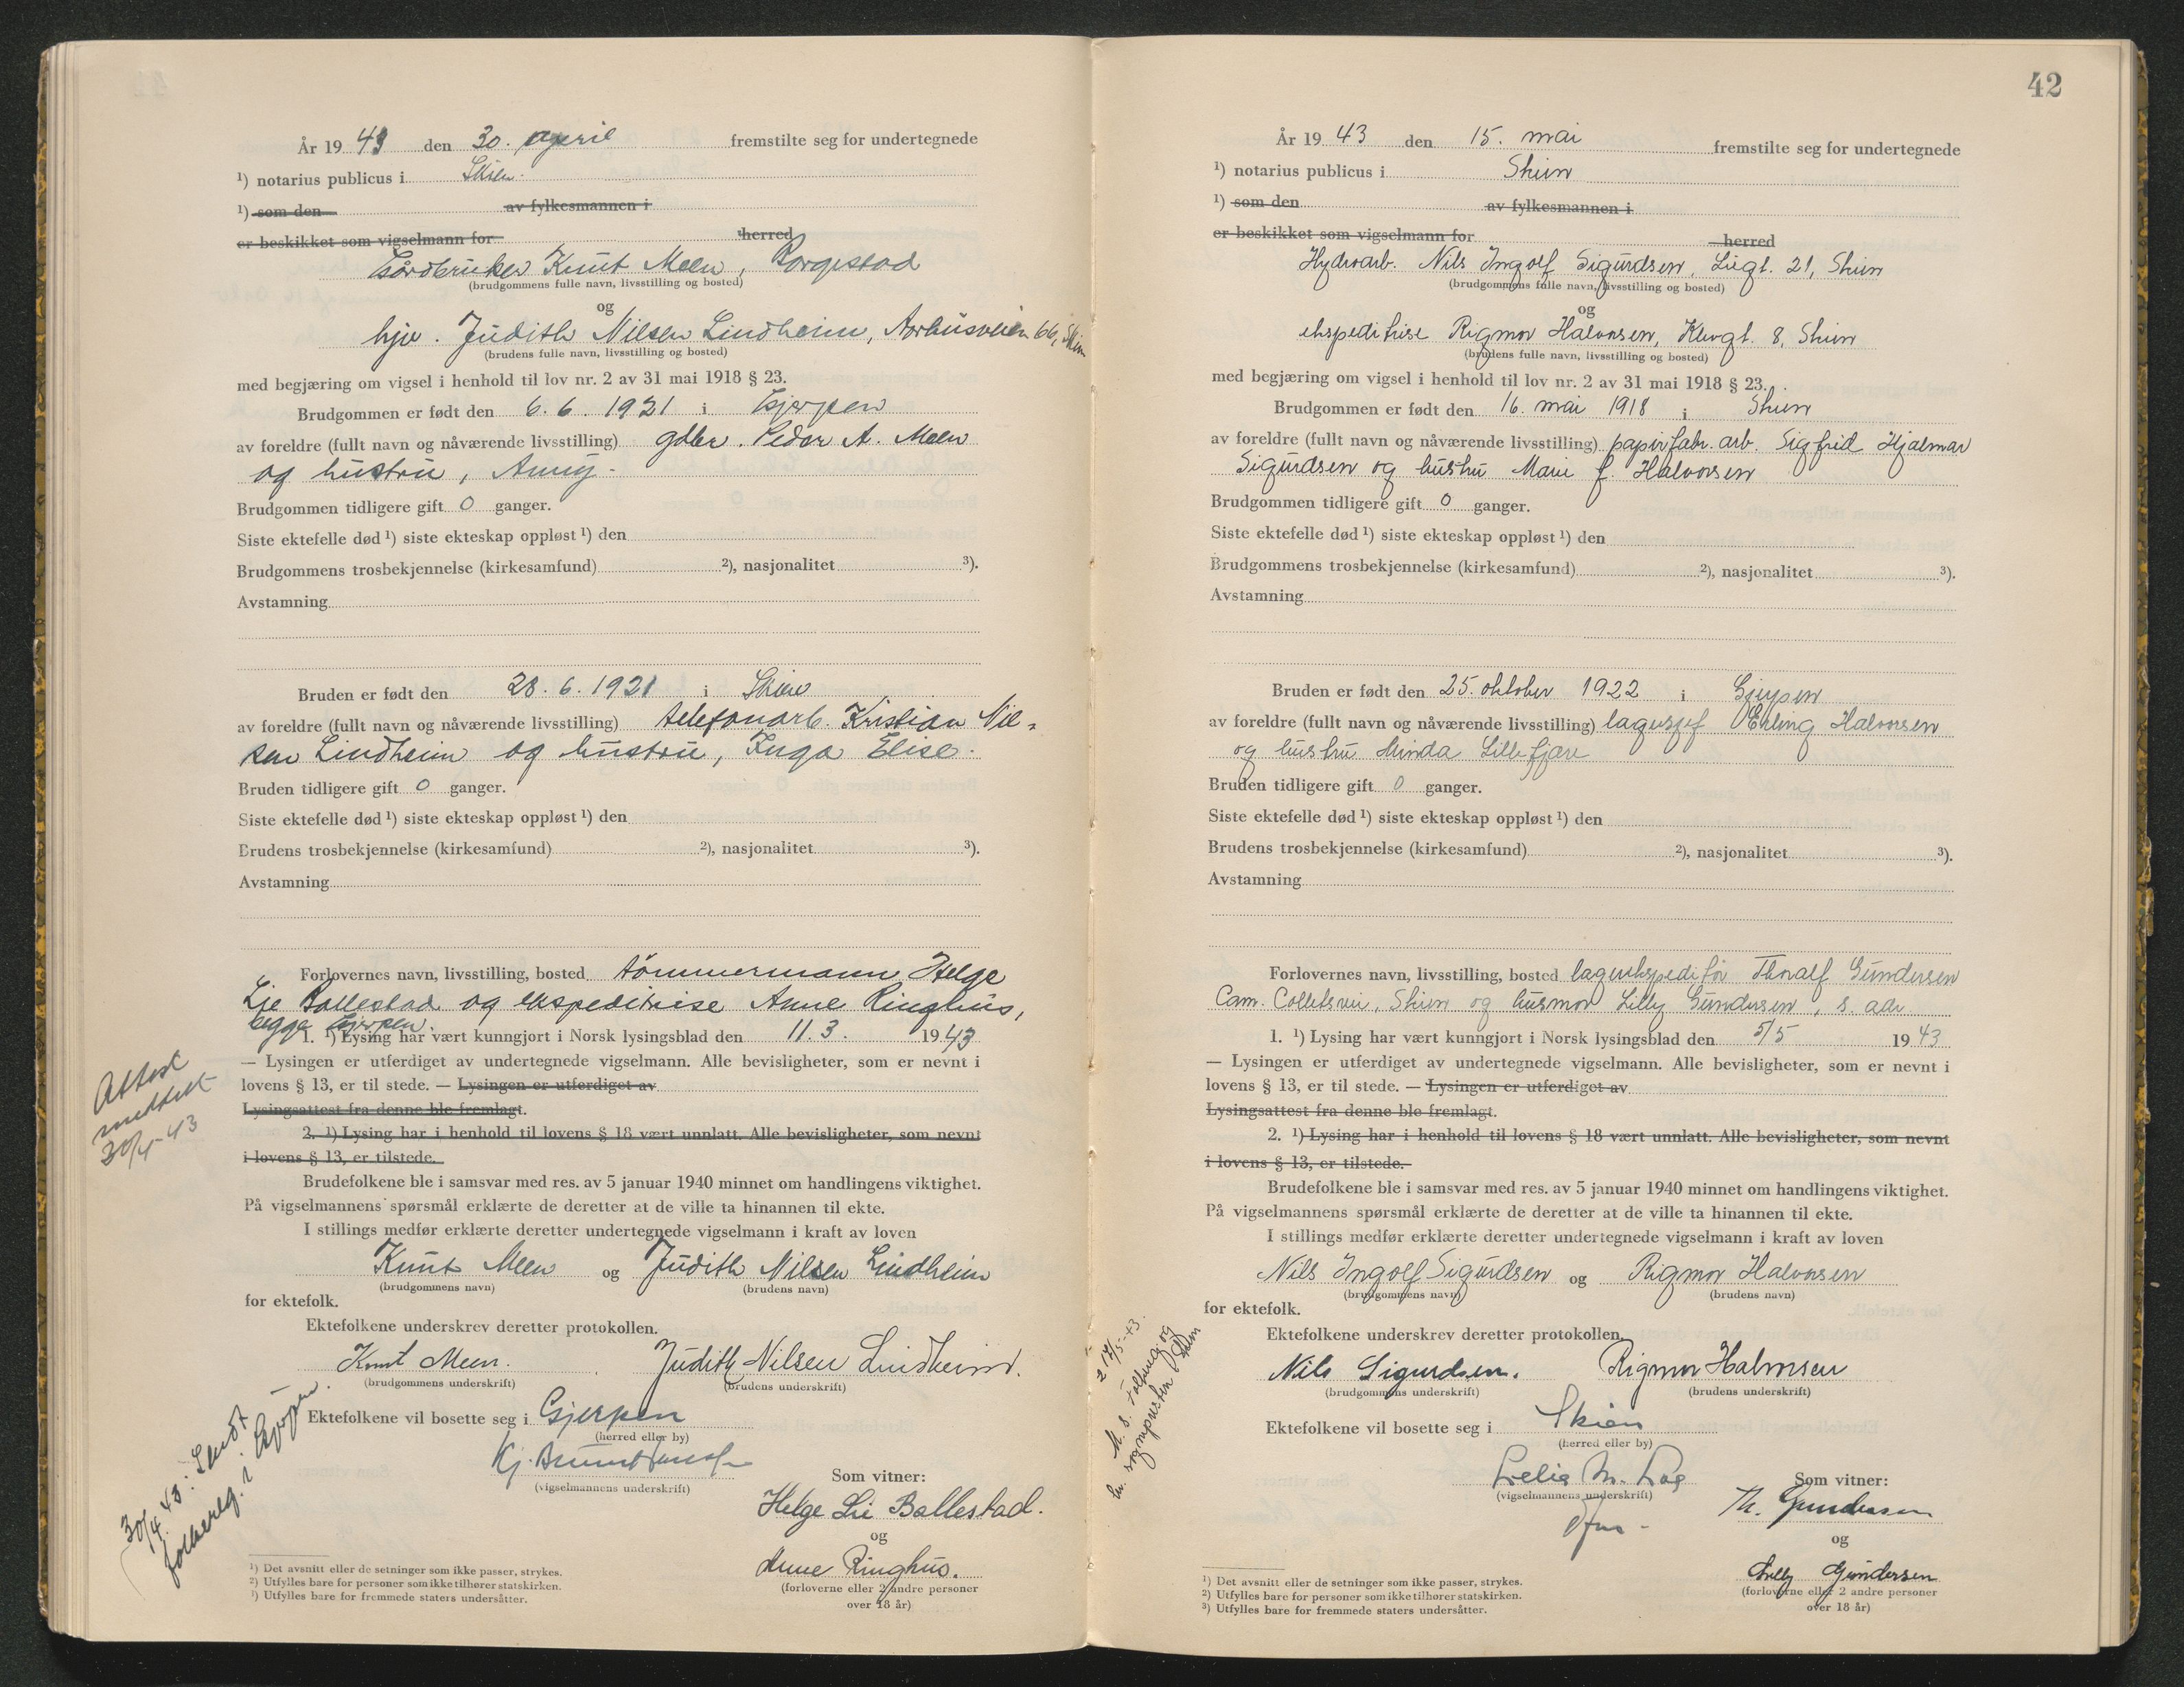 År 19 43 den 30. april fremstilte seg for undertegnede
¹) notarius publicus i Skien.
¹) som den av fylkesmannen i
er beskikket som vigselmann for herred
Gårdbruker Knut Meen, Borgestad
(brudgommens fulle navn, livsstilling og bosted)
og
hjv. Judith Nilsen Lindheim, Aarhusveien 66, Skien
(brudens fulle navn, livsstilling og bosted)
med begjæring om vigsel i henhold til lov nr. 2 av 31 mai 1918 § 23.
Brudgommen er født den 6. 6. 1921 i Gjerpen
av foreldre (fullt navn og nåværende livsstilling) gdbr. Peder A. Meen
og hustru, Anny.
Brudgommen tidligere gift 0 ganger.
Siste ektefelle død ¹) siste ekteskap oppløst ¹) den
Brudgommens trosbekjennelse (kirkesamfund) ²), nasjonalitet ³).
Avstamning
Bruden er født den 28. 6. 1921 i Skien
av foreldre (fullt navn og nåværende livsstilling) telefonarb. Kristian Nil-
sen Lindheim og hustru, Inga Elise.
Bruden tidligere gift 0 ganger.
Siste ektefelle død ¹) siste ekteskap oppløst ¹) den
Brudens trosbekjennelse (kirkesamfund) ²), nasjonalitet ³).
Avstamning
Forlovernes navn, livsstilling, bosted tömmermann Helge
Lie Ballestad og ekspeditrise Anne Ringhus,
begge Gjerpen.
1. ¹) Lysing har vært kunngjort i Norsk lysingsblad den 11. 3. 19 43
— Lysingen er utferdiget av undertegnede vigselmann. Alle bevisligheter, som er nevnt i
lovens § 13, er til stede. — Lysingen er utferdiget av
Lysingsattest fra denne ble fremlagt.
2. ¹) Lysing har i henhold til lovens § 18 vært unnlatt. Alle bevisligheter, som nevnt
i lovens § 13, er tilstede.
Attest
meddelt
30/4-43
Brudefolkene ble i samsvar med res. av 5 januar 1940 minnet om handlingens viktighet.
På vigselmannens spørsmål erklærte de deretter at de ville ta hinannen til ekte.
I stillings medfør erklærte deretter undertegnede vigselmann i kraft av loven
Knut Meen og Judith Nilsen Lindheim
(brudgommens navn) (brudens navn)
for ektefolk.
Ektefolkene underskrev deretter protokollen.
Knut Meen. Judith Nilsen Lindheim.
(brudgommens underskrift) (brudens underskrift)
Ektefolkene vil bosette seg i Gjerpen
(herred eller by)
(vigselmannens underskrift)
Som vitner:
Helge Lie Ballestad.
og
Anne Ringhus.
(forloverne eller 2 andre personer
over 18 år)
30/4. 43. Sendt
folkereg. i Gjerpen.
¹) Det avsnitt eller de setninger som ikke passer, strykes.
²) Utfylles bare for personer som ikke tilhører statskirken.
³) Utfylles bare for fremmede staters undersåtter.
42
År 19 43 den 15. mai fremstilte seg for undertegnede
¹) notarius publicus i Skien
¹) som den av fylkesmannen i
er beskikket som vigselmann for herred
Hydroarb. Nils Ingolf Sigurdsen, Liegt. 21, Skien
(brudgommens fulle navn, livsstilling og bosted)
og
ekspeditrise Rigmor Halvorsen, Klevgt. 8, Skien
(brudens fulle navn, livsstilling og bosted)
med begjæring om vigsel i henhold til lov nr. 2 av 31 mai 1918 § 23.
Brudgommen er født den 16. mai 1918 i Skien
av foreldre (fullt navn og nåværende livsstilling) papirfabr. arb. Sigfrid Hjalmar
Sigurdsen og hustru Marie f. Halvorsen
Brudgommen tidligere gift 0 ganger.
Siste ektefelle død ¹) siste ekteskap oppløst ¹) den
Brudgommens trosbekjennelse (kirkesamfund) ²), nasjonalitet ³).
Avstamning
Bruden er født den 25. oktober 1922 i Gjerpen
av foreldre (fullt navn og nåværende livsstilling) lagersjef Erling Halvorsen
og hustru Minda Lillefjære
Bruden tidligere gift 0 ganger.
Siste ektefelle død ¹) siste ekteskap oppløst ¹) den
Brudens trosbekjennelse (kirkesamfund) ²), nasjonalitet ³).
Avstamning
Forlovernes navn, livsstilling, bosted lagerekspeditør Thoralf Gundersen
Cam. Colletsvei, Skien og husmor Lilly Gundersen, s. adr.
1. ¹) Lysing har vært kunngjort i Norsk lysingsblad den 5/5 19 43
— Lysingen er utferdiget av undertegnede vigselmann. Alle bevisligheter, som er nevnt i
lovens § 13, er til stede. — Lysingen er utferdiget av
Lysingsattest fra denne ble fremlagt.
2. ¹) Lysing har i henhold til lovens § 18 vært unnlatt. Alle bevisligheter, som nevnt
i lovens § 13, er tilstede.
Brudefolkene ble i samsvar med res. av 5 januar 1940 minnet om handlingens viktighet.
På vigselmannens spørsmål erklærte de deretter at de ville ta hinannen til ekte.
I stillings medfør erklærte deretter undertegnede vigselmann i kraft av loven
Nils Ingolf Sigurdsen og Rigmor Halvorsen
(brudgommens navn) (brudens navn)
for ektefolk.
Ektefolkene underskrev deretter protokollen.
Nils Sigurdsen. Rigmor Halvorsen
(brudgommens underskrift) (brudens underskrift)
Ektefolkene vil bosette seg i Skien
(herred eller by)
(vigselmannens underskrift)
Som vitner:
Th. Gundersen
og
Lilly Gundersen
(forloverne eller 2 andre personer
over 18 år)
sognepresten Skien
¹) Det avsnitt eller de setninger som ikke passer, strykes.
²) Utfylles bare for personer som ikke tilhører statskirken.
³) Utfylles bare for fremmede staters undersåtter.